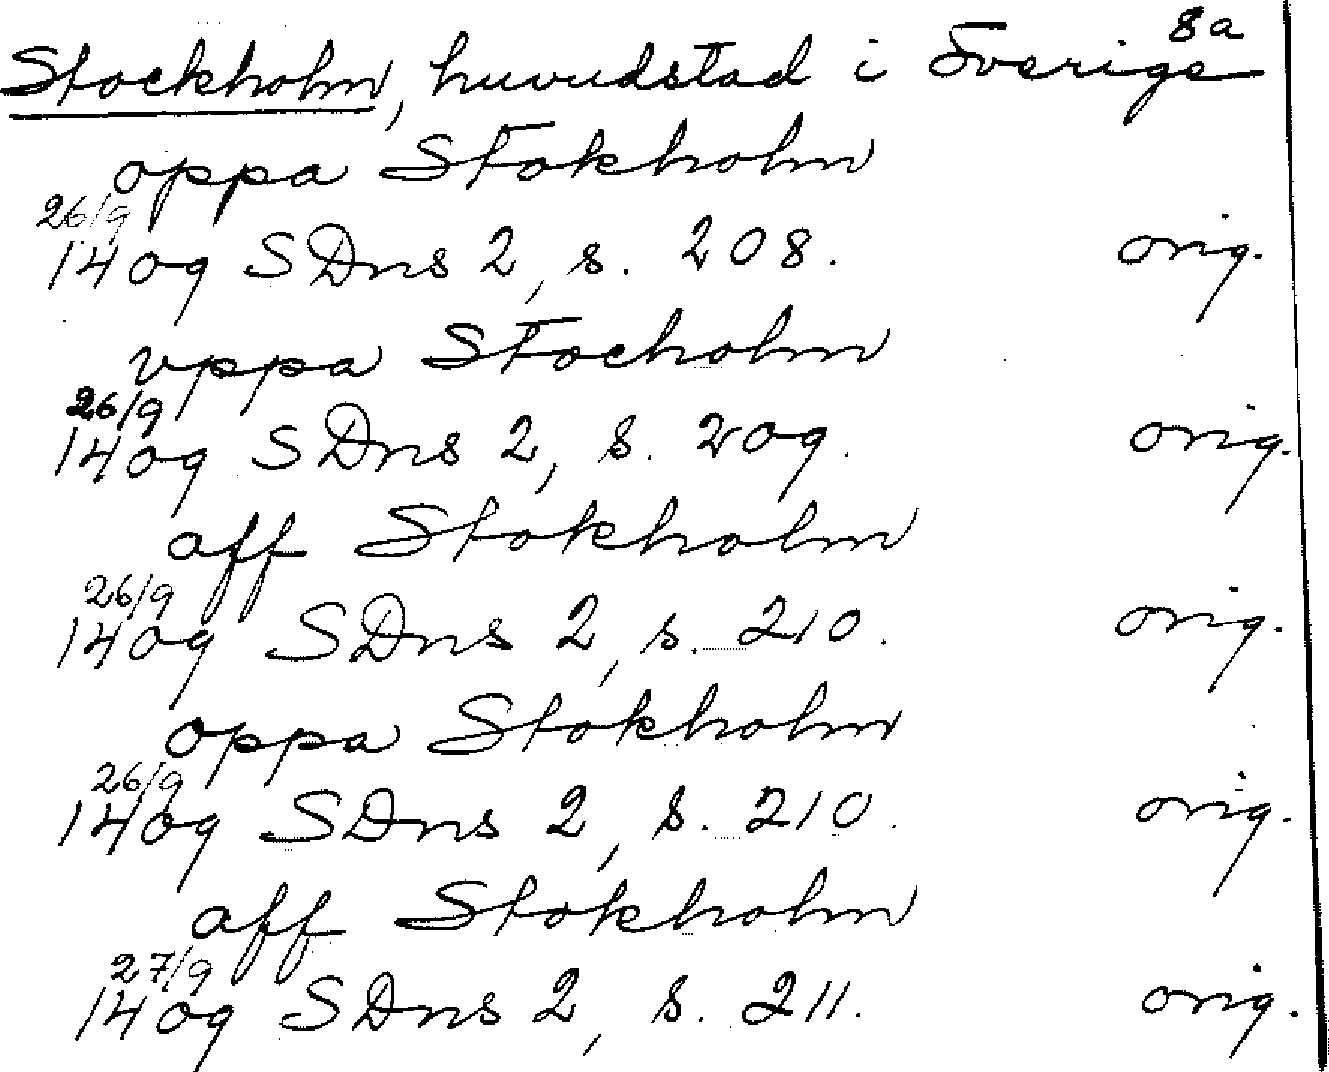 8a
Stockholm, huvudstad i Sverige
oppa Stokholm
26/9
1409 SDns 2, s. 208. orig.
vppa Stocholm
26/9
1409 SDns 2, s. 209. orig.
aff Stokholm
26/9
1409 SDns 2, s. 210. orig.
oppa Stokholm
26/9
1409 SDns 2, s. 210. orig.
aff Stokholm
27/9
1409 SDns 2, s. 211. orig.